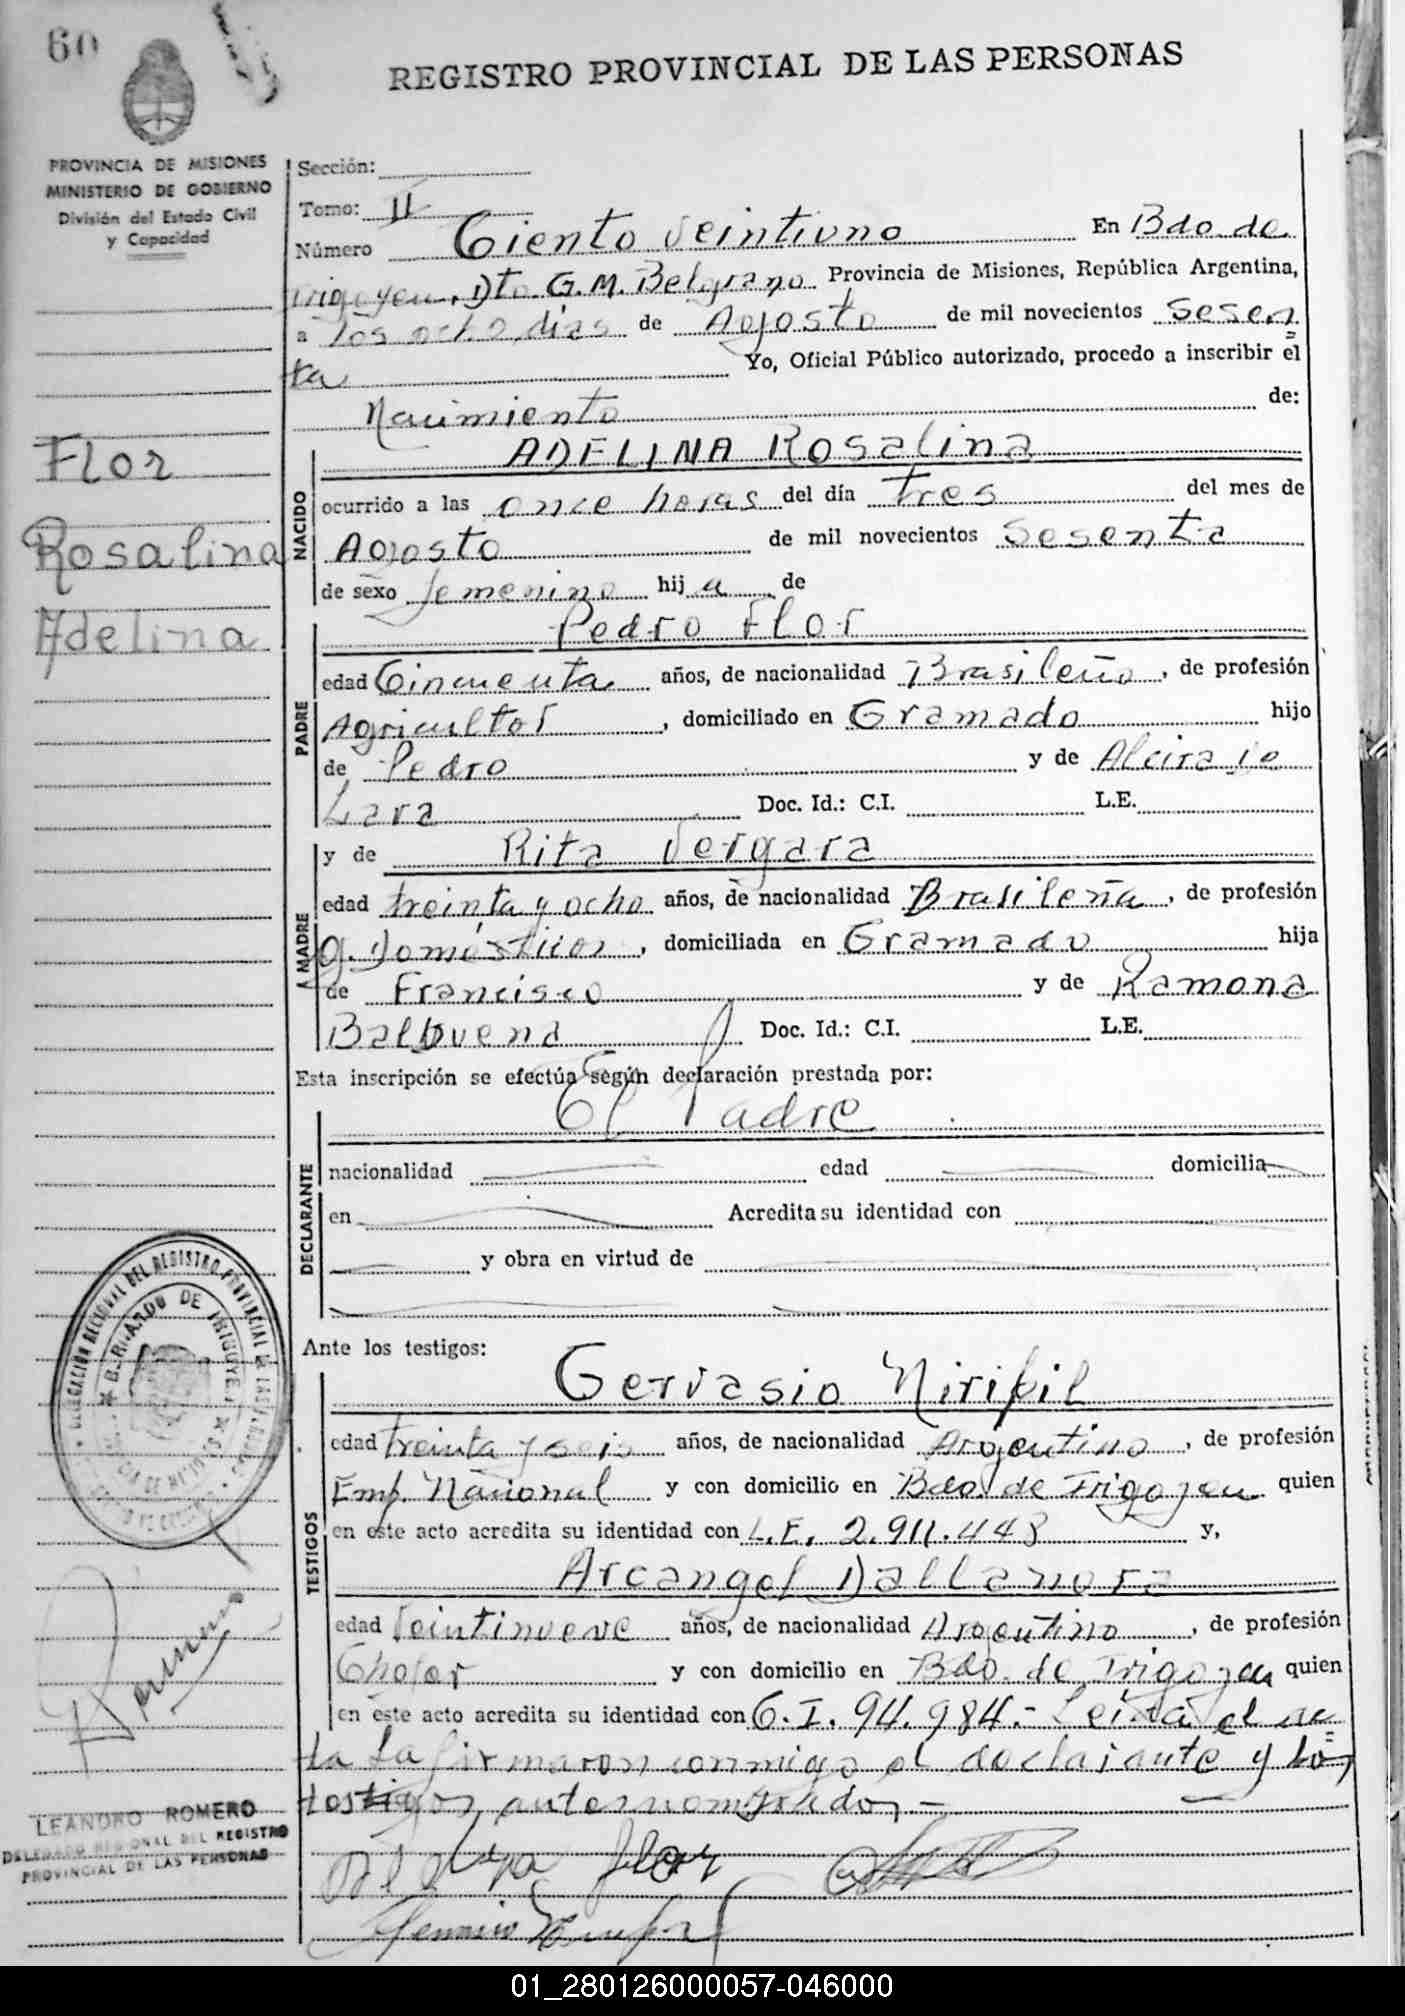 60
REGISTRO PROVINCIAL DE LAS PERSONAS
PROVINCIA DE MISIONES
MINISTERIO DE GOBIERNO
División del Estado Civil
y Capacidad
Flor
Rosalina
Adelina
Sección:
Tomo: II
Número Ciento veintiuno En Bdo. de
Irigoyen, Dto. G.M. Belgrano Provincia de Misiones, República Argentina,
a los ocho días de Agosto de mil novecientos Sesen
ta Yo, Oficial Público autorizado, procedo a inscribir el
Nacimiento de:
NACIDO
ADELINA Rosalina
ocurrido a las once horas del día tres del mes de
Agosto de mil novecientos Sesenta
de sexo femenino hija de
PADRE
Pedro Flor
edad Cincuenta años, de nacionalidad Brasileño, de profesión
Agricultor, domiciliado en Gramado hijo
de Pedro y de Alcira de
Lara Doc. Id.: C.I. L.E.
MADRE
y de Rita Vergara
edad treinta y ocho años, de nacionalidad Brasileña, de profesión
q. Domésticos, domiciliada en Gramado hija
de Francisco y de Ramona
Balbuena Doc. Id.: C.I. L.E.
Esta inscripción se efectúa según declaración prestada por:
El Padre
DECLARANTE
nacionalidad edad domicilia
en Acredita su identidad con
y obra en virtud de
Ante los testigos:
TESTIGOS
Gervasio Niripil
edad treinta y seis años, de nacionalidad Argentino, de profesión
Emp. Nacional y con domicilio en Bdo. de Irigoyen quien
en este acto acredita su identidad con L.E. 2.911.443 y,
Arcangel Dallanora
edad Veintinueve años, de nacionalidad Argentino, de profesión
Chofer y con domicilio en Bdo. de Irigoyen quien
en este acto acredita su identidad con C.I. 94.984.- Leida el ac
ta la firmaron conmigo el declarante y los
testigos antes nombrados.-
DELEGACION REGIONAL DEL REGISTRO PROVINCIAL DE LAS PERSONAS
BERNARDO DE IRIGOYEN
LEANDRO ROMERO
DELEGADO REGIONAL DEL REGISTRO
PROVINCIAL DE LAS PERSONAS
Flor
01_280126000057-046000